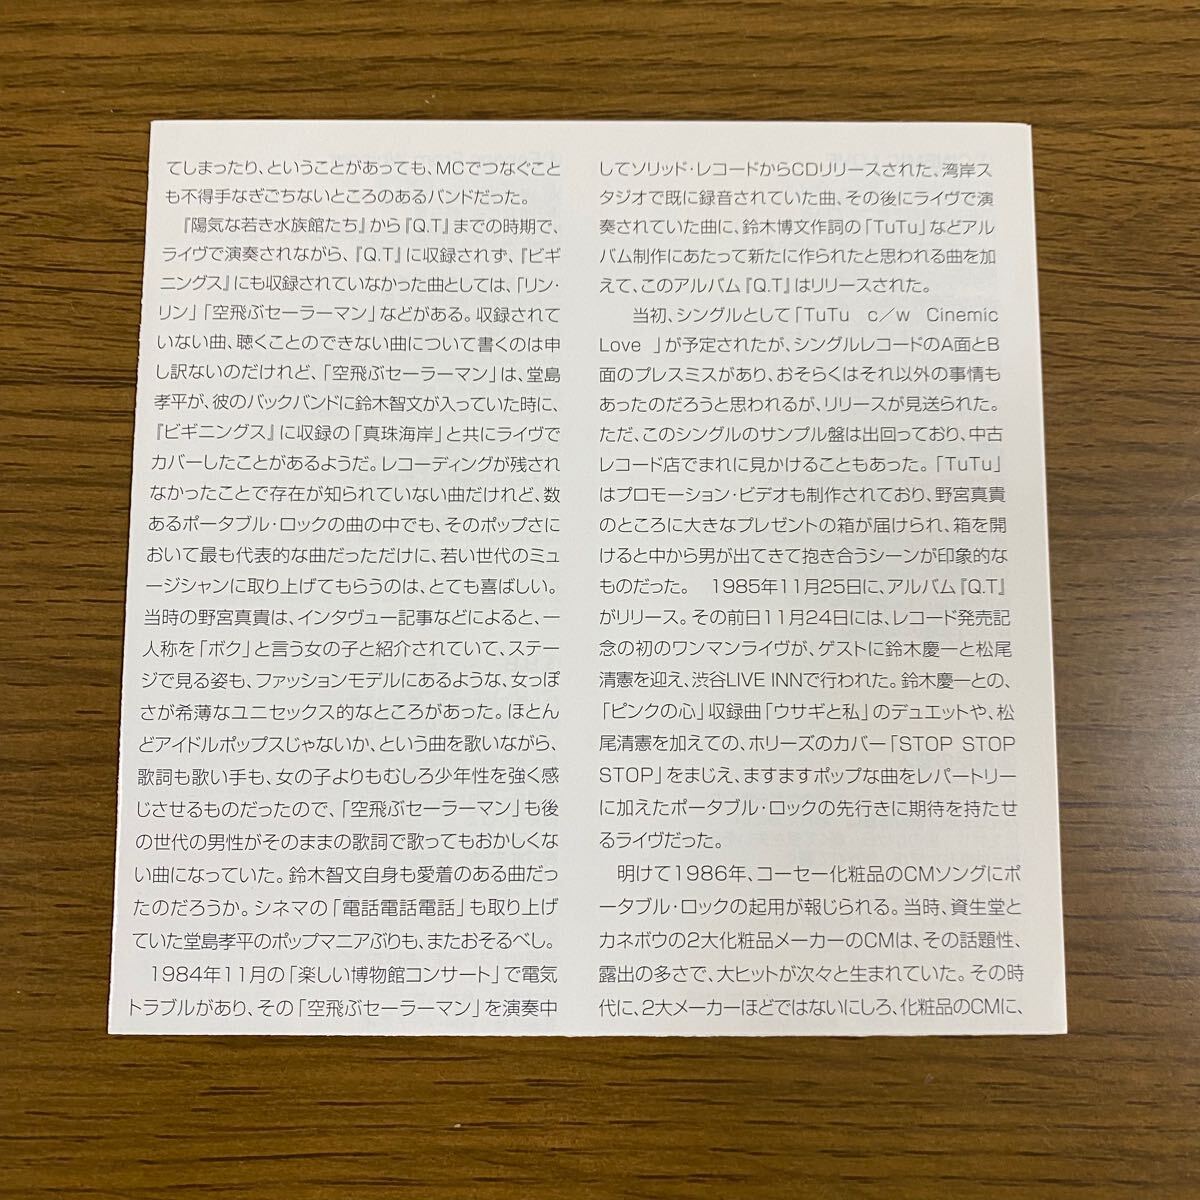 てしまったり、ということがあっても、MCでつなぐこと
も不得手なぎごちないところのあるバンドだった。
『陽気な若き水族館たち』から『Q.T』までの時期で、
ライヴで演奏されながら、『Q.T』に収録されず、『ビギ
ニングス』にも収録されていなかった曲としては、「リン・
リン」「空飛ぶセーラーマン」などがある。収録されて
いない曲、聴くことのできない曲について書くのは申
し訳ないのだけれど、「空飛ぶセーラーマン」は、堂島
孝平が、彼のバックバンドに鈴木智文が入っていた時に、
『ビギニングス』に収録の「真珠海岸」と共にライヴで
カバーしたことがあるようだ。レコーディングが残され
なかったことで存在が知られていない曲だけれど、数
あるポータブル・ロックの曲の中でも、そのポップさに
おいて最も代表的な曲だっただけに、若い世代のミュ
ージシャンに取り上げてもらうのは、とても喜ばしい。
当時の野宮真貴は、インタヴュー記事などによると、一
人称を「ボク」と言う女の子と紹介されていて、ステー
ジで見る姿も、ファッションモデルにあるような、女っぽ
さが希薄なユニセックス的なところがあった。ほとん
どアイドルポップスじゃないか、という曲を歌いながら、
歌詞も歌い手も、女の子よりもむしろ少年性を強く感
じさせるものだったので、「空飛ぶセーラーマン」も後
の世代の男性がそのままの歌詞で歌ってもおかしくな
い曲になっていた。鈴木智文自身も愛着のある曲だっ
たのだろうか。シネマの「電話電話電話」も取り上げ
ていた堂島孝平のポップマニアぶりも、またおそるべし。
1984年11月の「楽しい博物館コンサート」で電気
トラブルがあり、その「空飛ぶセーラーマン」を演奏中
してソリッド・レコードからCDリリースされた、湾岸ス
タジオで既に録音されていた曲、その後にライヴで演
奏されていた曲に、鈴木博文作詞の「TuTu」などアル
バム制作にあたって新たに作られたと思われる曲を加
えて、このアルバム『Q.T』はリリースされた。
当初、シングルとして「TuTu c／w Cinemic
Love 」が予定されたが、シングルレコードのA面とB
面のプレスミスがあり、おそらくはそれ以外の事情も
あったのだろうと思われるが、リリースが見送られた。
ただ、このシングルのサンプル盤は出回っており、中古
レコード店でまれに見かけることもあった。「TuTu」
はプロモーション・ビデオも制作されており、野宮真貴
のところに大きなプレゼントの箱が届けられ、箱を開
けると中から男が出てきて抱き合うシーンが印象的な
ものだった。 1985年11月25日に、アルバム『Q.T』
がリリース。その前日11月24日には、レコード発売記
念の初のワンマンライヴが、ゲストに鈴木慶一と松尾
清憲を迎え、渋谷LIVE INNで行われた。鈴木慶一との、
「ピンクの心」収録曲「ウサギと私」のデュエットや、松
尾清憲を加えての、ホリーズのカバー「STOP STOP
STOP」をまじえ、ますますポップな曲をレパートリー
に加えたポータブル・ロックの先行きに期待を持たせ
るライヴだった。
明けて1986年、コーセー化粧品のCMソングにポ
ータブル・ロックの起用が報じられる。当時、資生堂と
カネボウの2大化粧品メーカーのCMは、その話題性、
露出の多さで、大ヒットが次々と生まれていた。その時
代に、2大メーカーほどではないにしろ、化粧品のCMに、